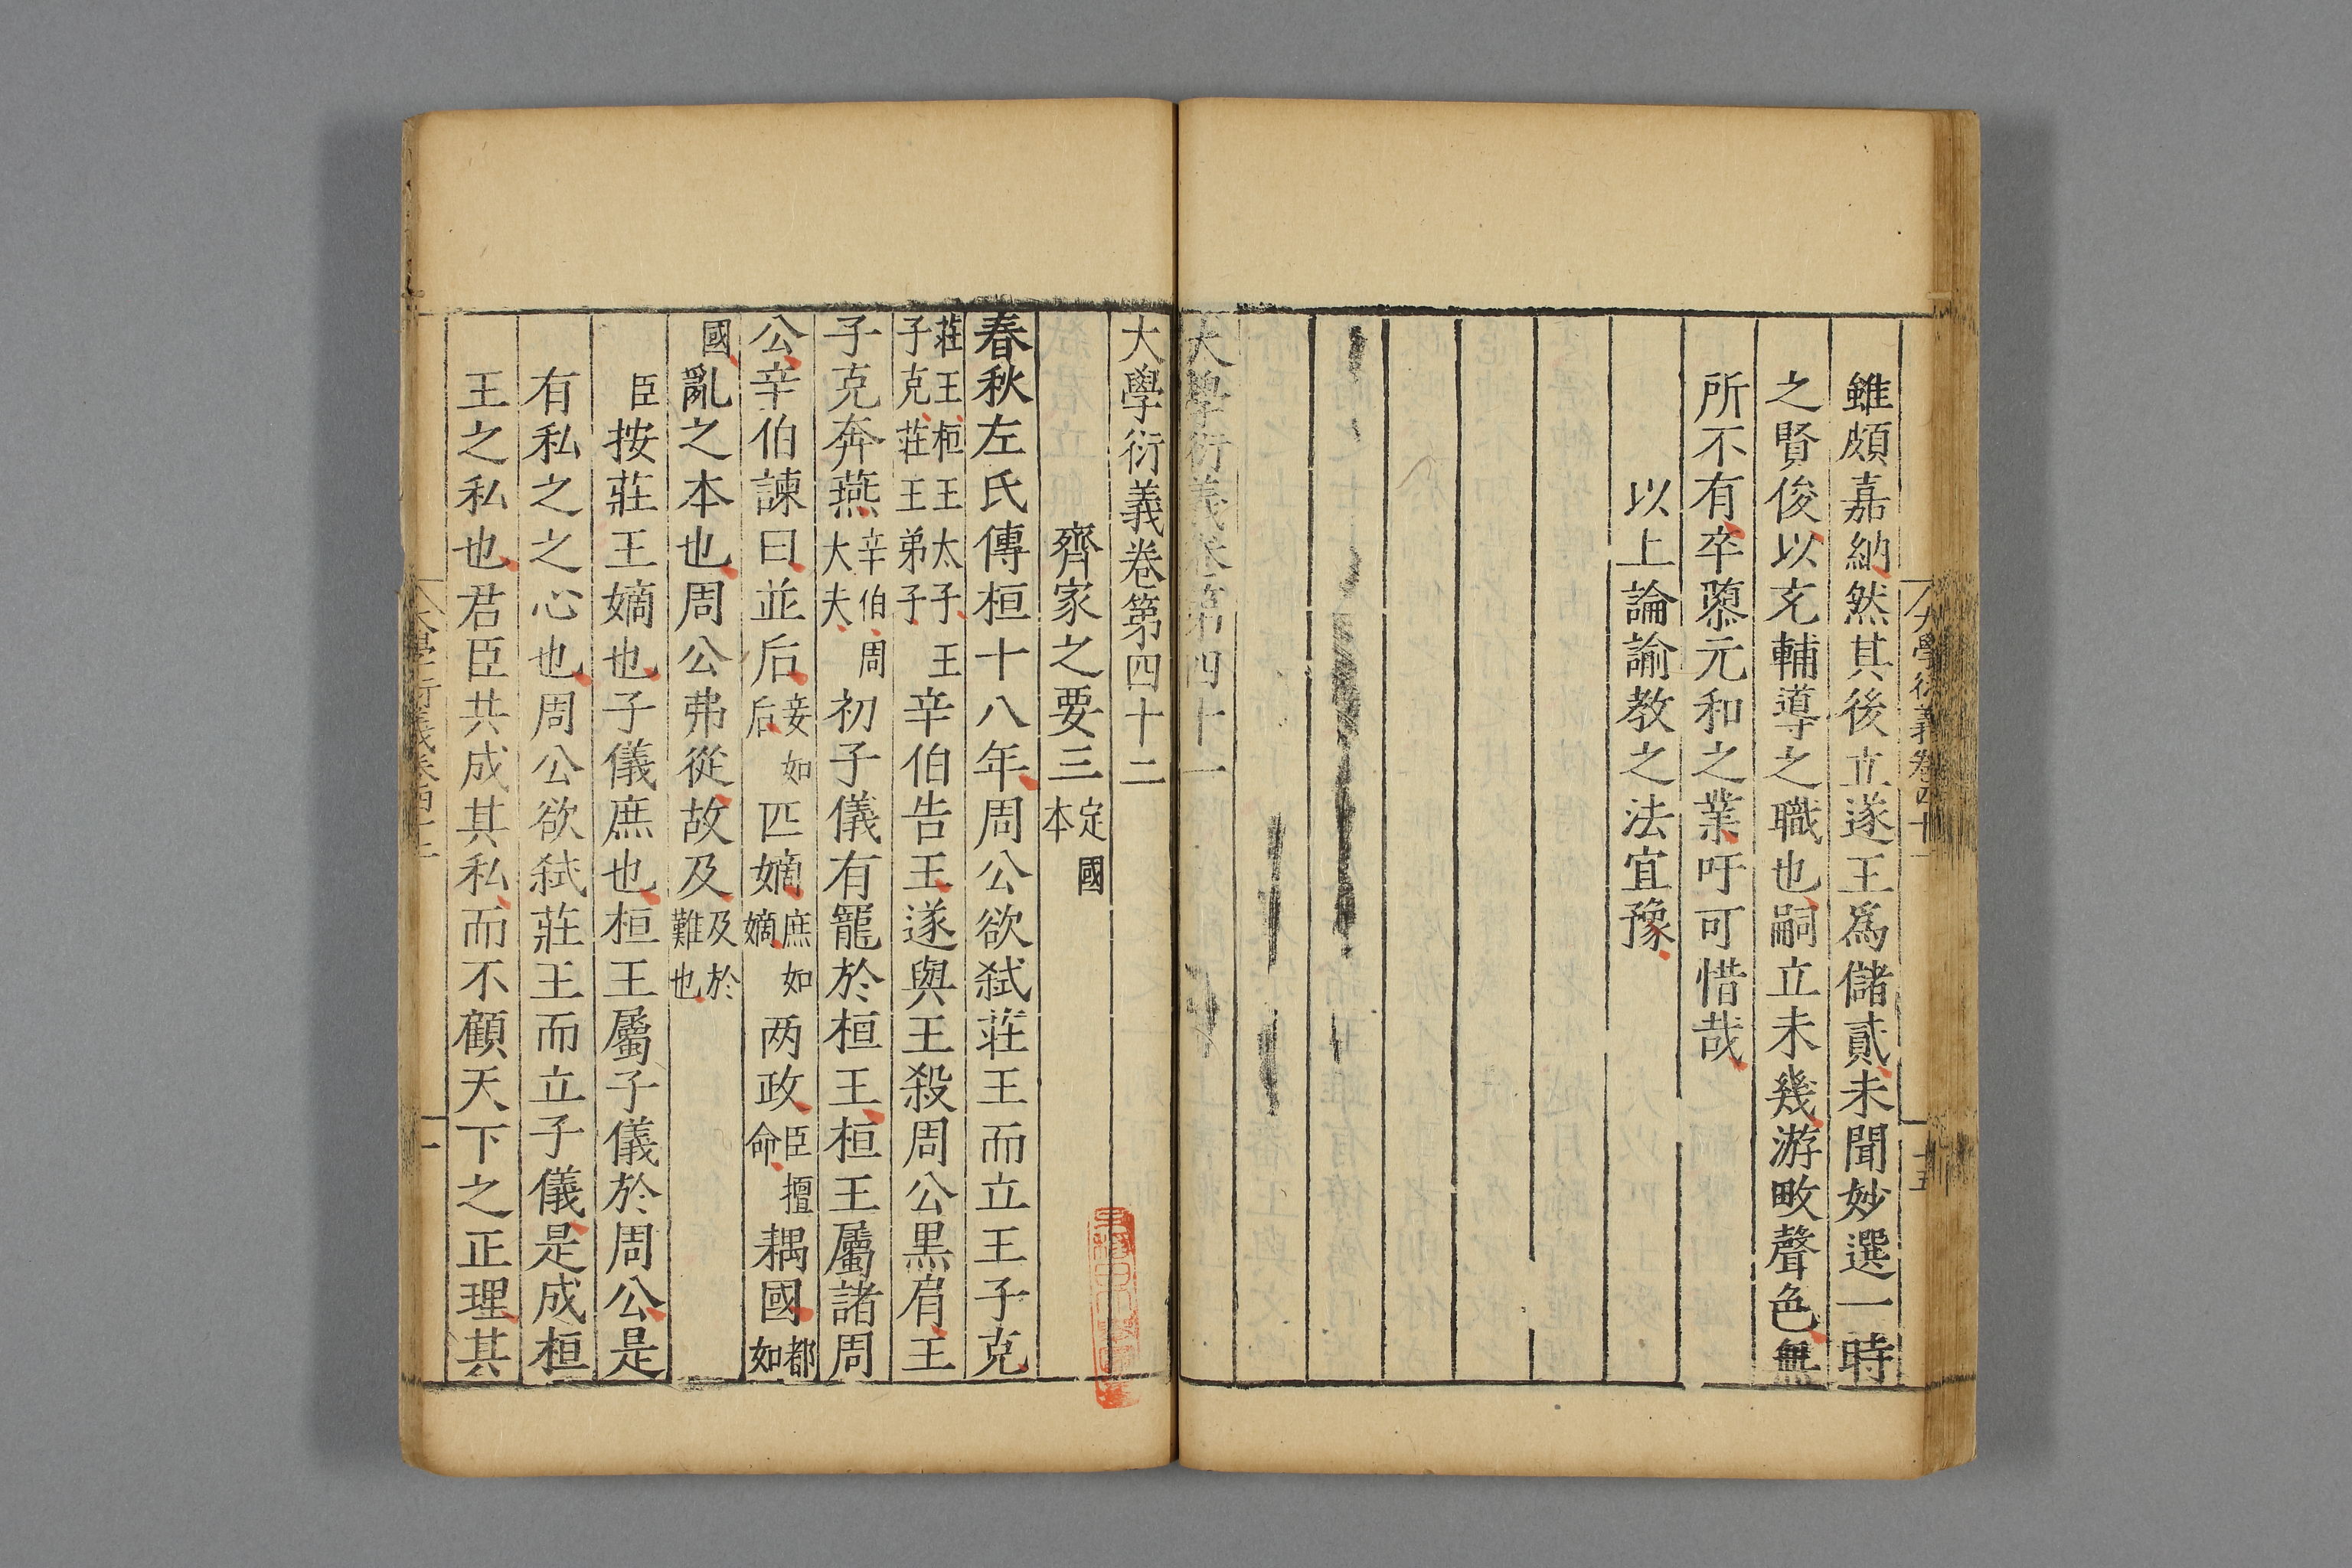 雖頗嘉納然其後立遂王爲儲貳未聞妙選一時
之賢俊以充輔導之職也嗣立未幾游畋聲色無
所不有卒隳元和之業吁可惜哉
以上論諭教之法宜豫
大學衍義卷第四十一
大學衍義卷第四十二
齊家之要三 定國本
春秋左氏傳桓十八年周公欲弑莊王而立王子克
莊王桓王太子王子克莊王弟子辛伯告王遂與王殺周公黑肩王
子克奔燕辛伯周大夫初子儀有寵於桓王桓王屬諸周
公辛伯諫曰並后妾如后匹嫡庶如嫡两政臣擅命耦國都如
國亂之本也周公弗從故及及於難也
臣按莊王嫡也子儀庶也桓王屬子儀於周公是
有私之之心也周公欲弑莊王而立子儀是成桓
王之私也君臣共成其私而不顧天下之正理其